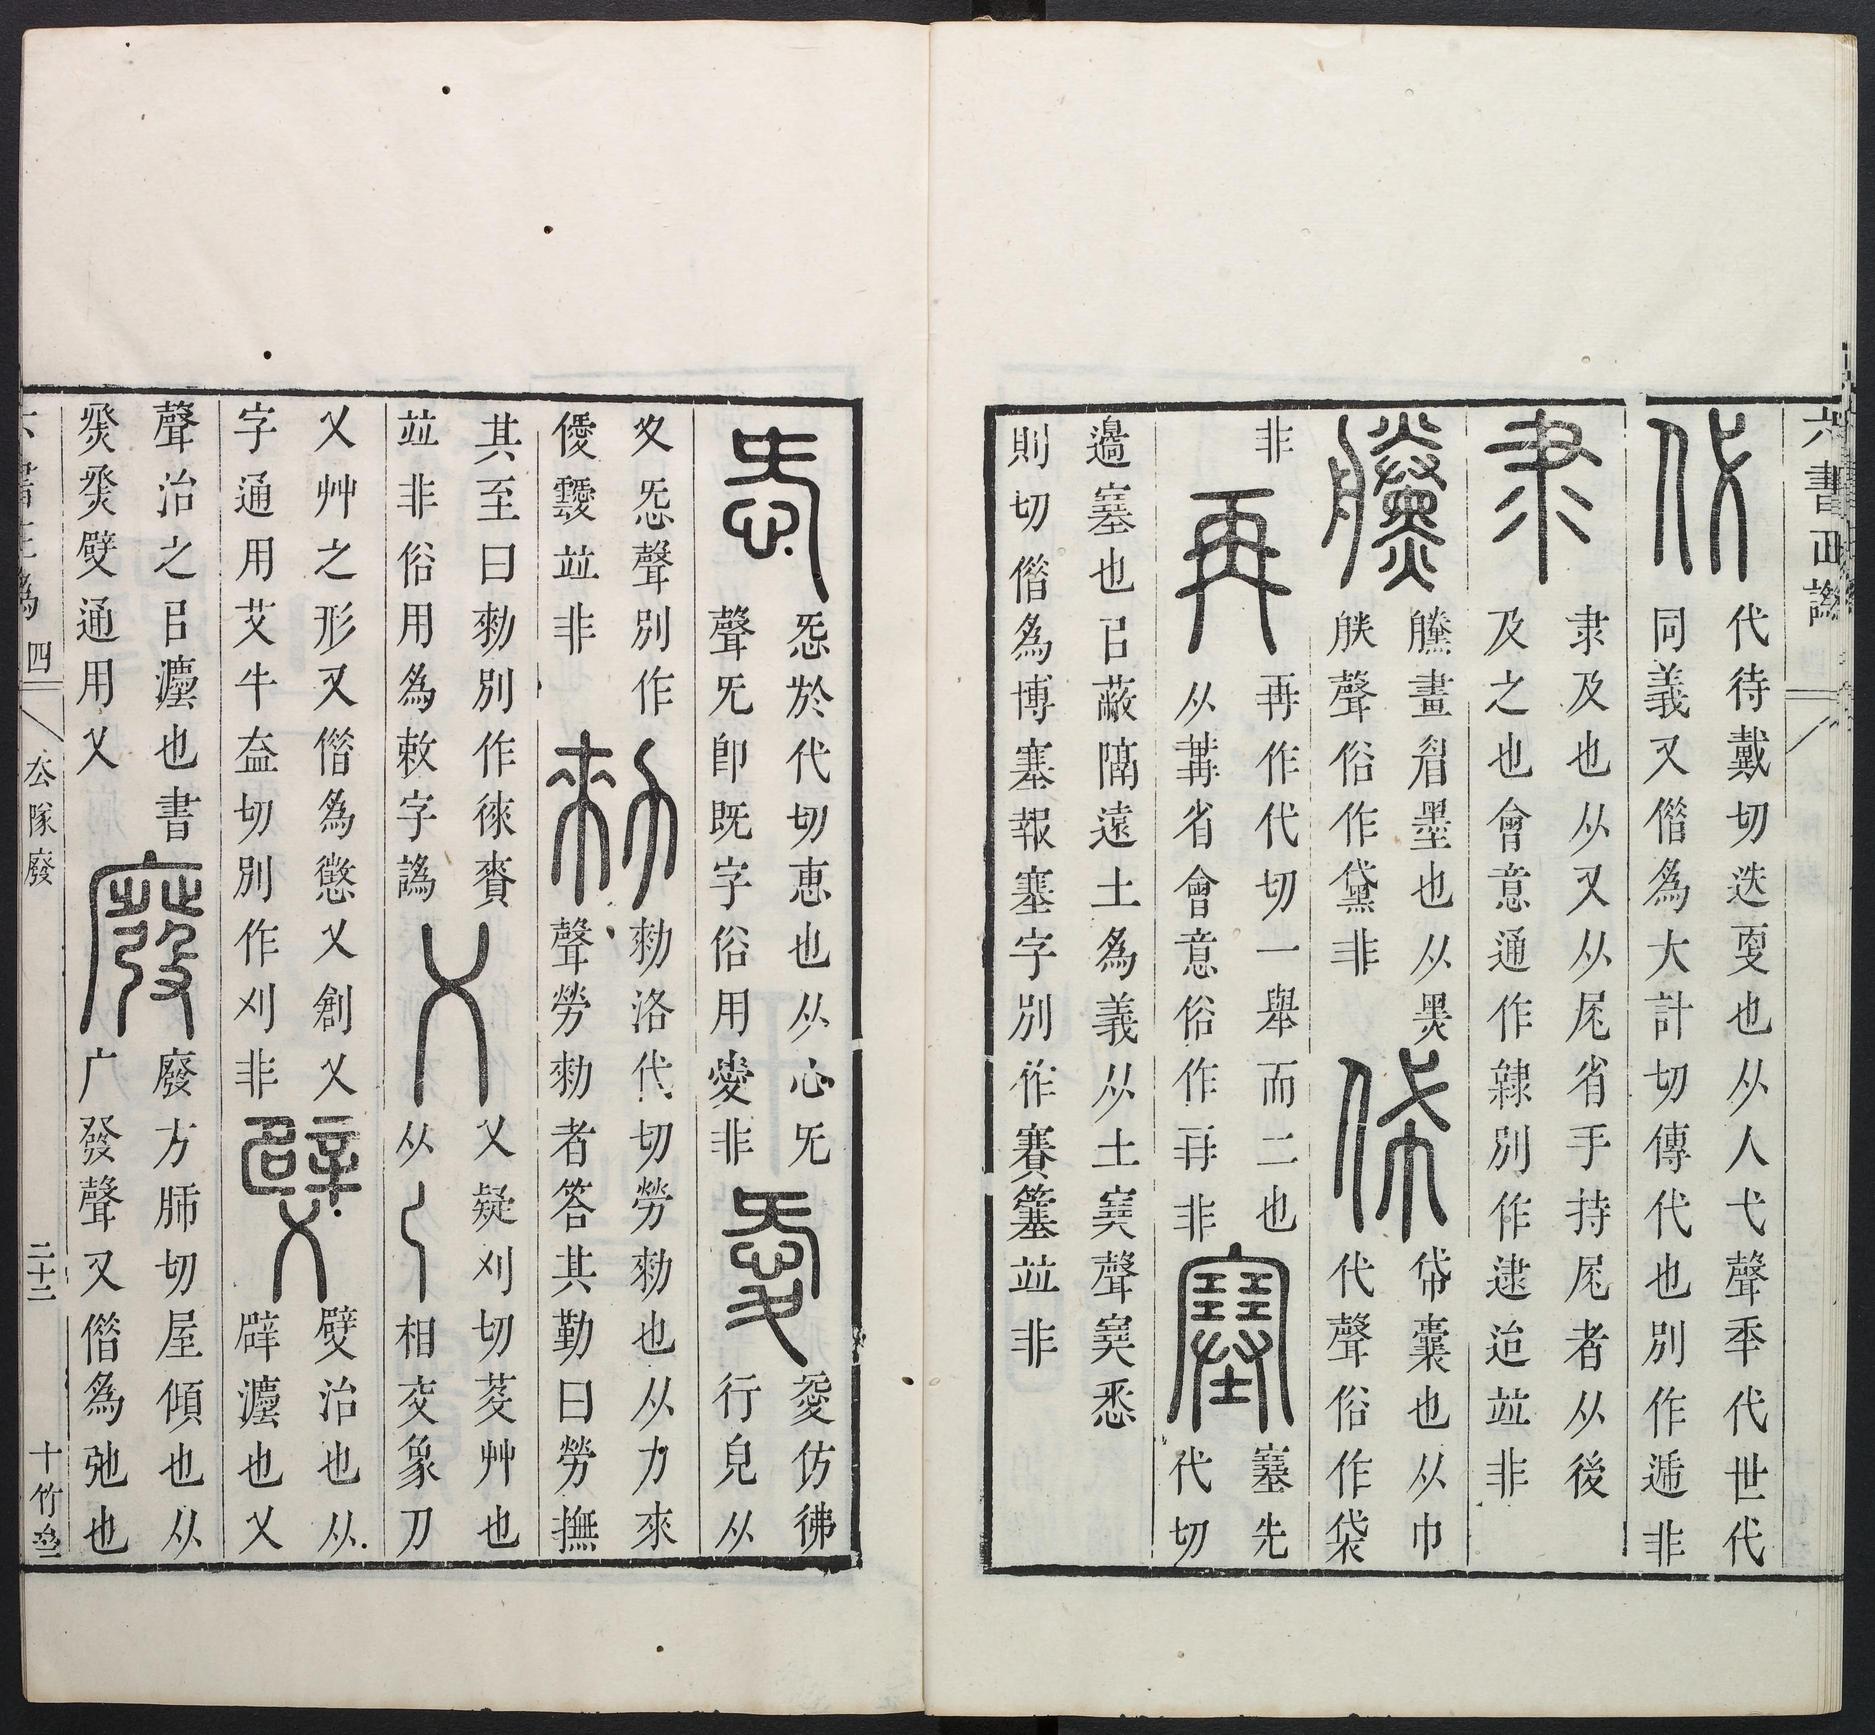 六書正譌
代
代待戴切迭㪅也从人弋聲年代世代
同義又借為大計切傳代也別作遞非
隶
隶及也从又从尾省手持尾者从後
及之也會意通作隸別作逮迨竝非
黱
黱畫眉墨也从黑
朕聲俗作黛非
帒
帒囊也从巾
代聲俗作袋
非
再
再作代切一舉而二也
从冓省會意俗作再非
塞
塞先
代切
邊塞也㠯蔽隔遠土為義从土㝨聲㝨悉
則切借為博塞報塞字別作賽簺竝非
㤅
㤅於代切惠也从心旡
聲旡即既字俗用愛非
愛
愛仿彿
行皃从
夊㤅聲別作
僾靉竝非
勑
勑洛代切勞勑也从力來
聲勞勑者答其勤曰勞撫
其至曰勑別作徠賚
竝非俗用為敕字譌
乂
乂疑刈切芟艸也
从乀相交象刀
乂艸之形又借為懲乂創乂
字通用艾牛益切別作刈非
嬖
嬖治也从
辟灋也乂
聲治之㠯灋也書
烝烝嬖通用乂
廢
廢方肺切屋傾也从
广發聲又借為弛也
六書正譌 四
夳隊廢
二十二
十竹齋